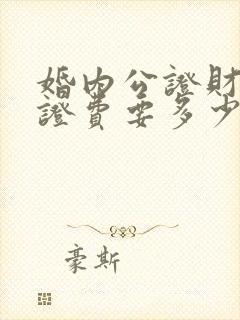 婚内公證財
證費要多少
豪斯